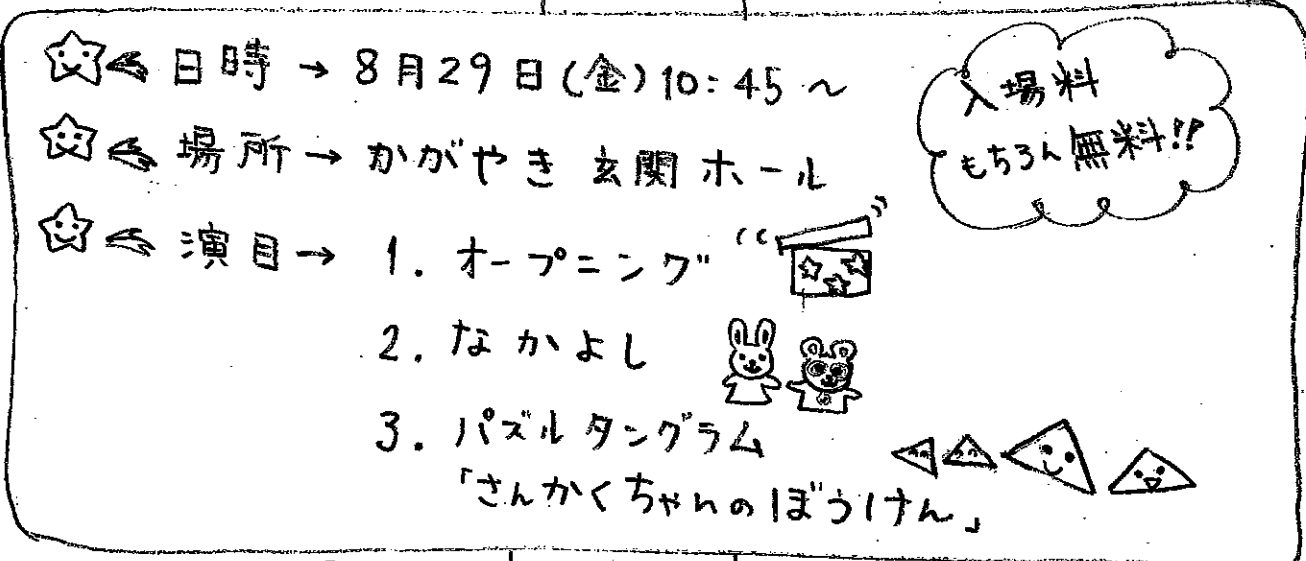 日時 → 8月29日(金)10:45〜
場所 → かがやき 玄関ホール
演目 → 1. オープニング
2. なかよし
3. パズルタングラム
「さんかくちゃんのぼうけん」
入場料
もちろん無料!!